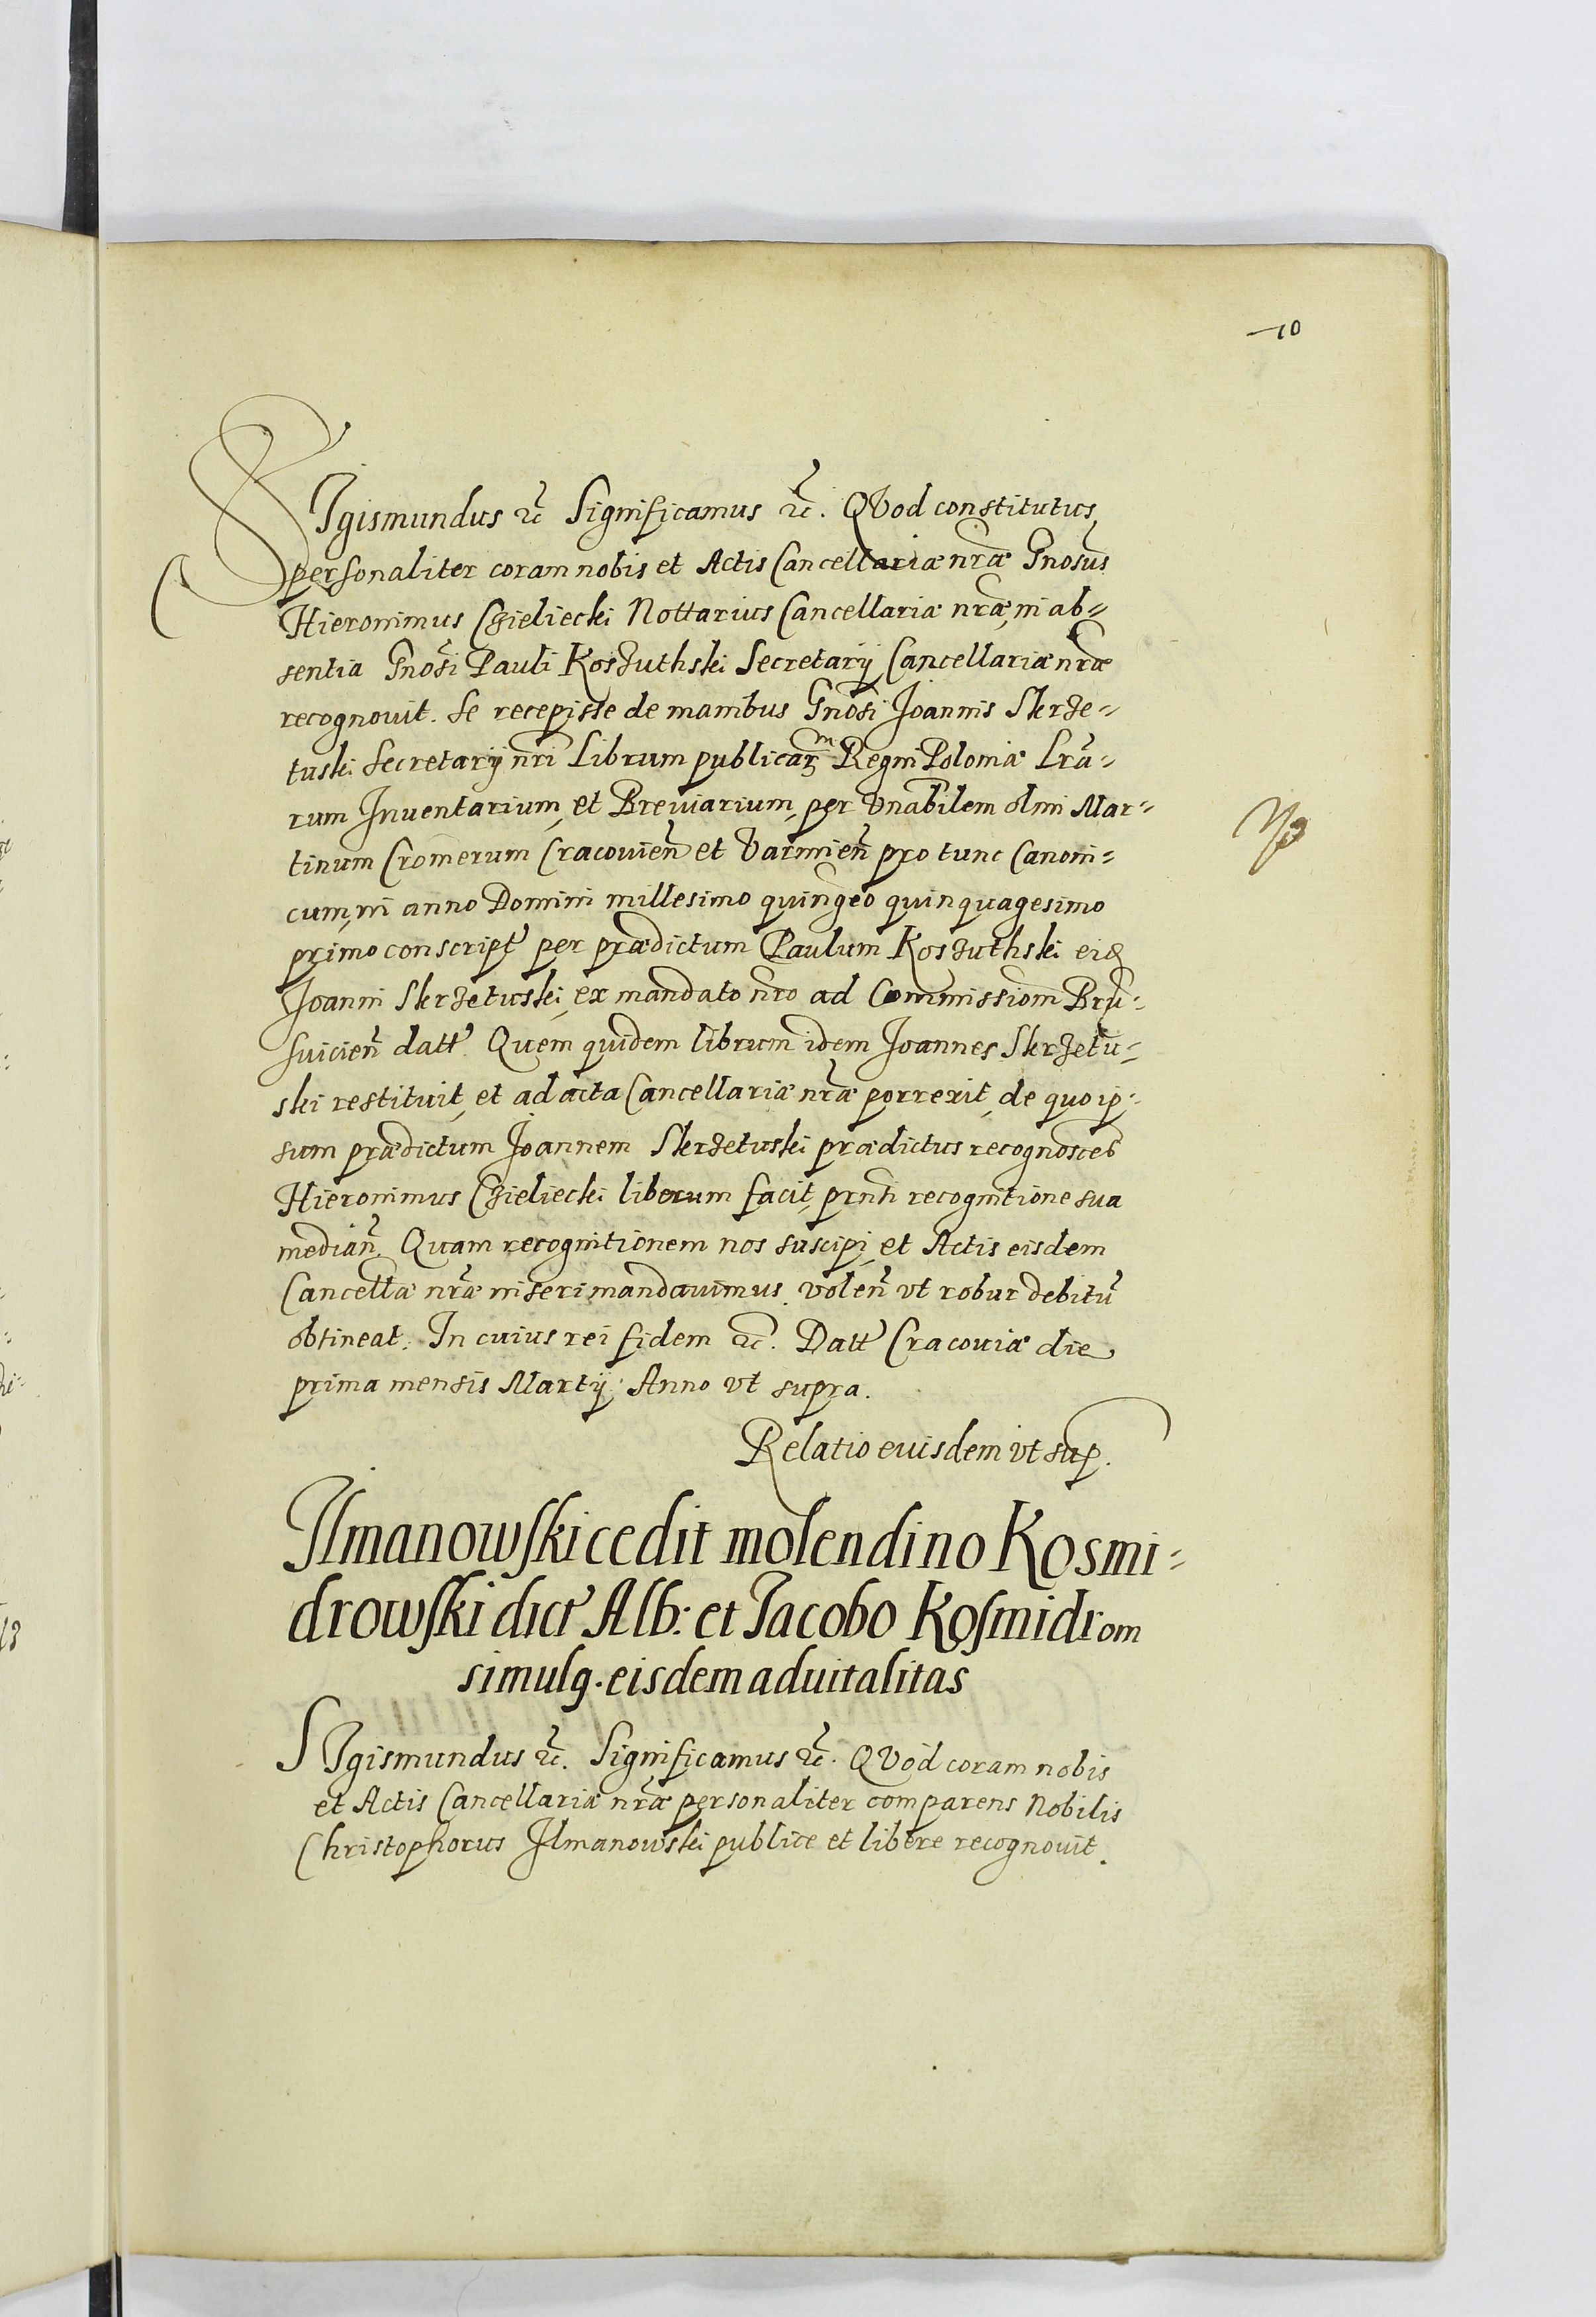 10
SIgismundus &c̃ Significamus &c̃. QVod constitutus
personaliter coram nobis et Actis Cancellariæ nr̃æ Gnosus̃
Hieronimus Chieliecki Nottarius Cancellariæ nr̃æ, in ab=
sentia Gnosi Pauli Koszuthski Secretarij Cancellariæ nr̃æ
recognouit. Se recepisse de manibus Gnosi Joannis Skrze=
tuski Secretarij nr̃i Librum publicarum Regni Poloniæ Lrã=
rum Inventarium, et Breuiarium, per Vnabilem olim Mar=
tinum Cromerum Cracouien̄ et Varmien̄ pro tunc Canoni=
cum, in anno Domini millesimo quingeo quinquagesimo
primo conscript̃ per prædictum Paulum Koszuthski eid
Joanni Skrzetuski, ex mandato nr̃o ad Commissionem Brũ=
suicien̄ datt̃. Quem quidem librum idem Joannes Skrzetu=
ski restituit, et ad acta Cancellariæ nr̃æ porrexit, de quo ip=
sum prædictum Joannem Skrzetuski prædictus recognosceñs
Hieronimus Chieliecki liberum facit, prn̄ti recognitione sua
median̄. Quam recognitionem nos suscipi, et Actis eisdem
Cancellæ nr̃æ inseri mandauimus. volen̄ vt robur debitũ
obtineat. In cuius rei fidem &c̃. Datt̃ Cracouiæ die
prima mensis Martij: Anno vt supra.
Relatio euisdem vt sup.
Ilmanowski cedit molendino Kosmi=
drowski dict̃ Alb: et Jacobo Kosmidrom
simulq. eisdem aduitalitas
SIgismundus &c̃. Significamus &c̃. QVod coram nobis
et Actis Cancellariæ nr̃æ personaliter comparens Nobilis
Christophorus Ilmanowski publice et libere recognouit.